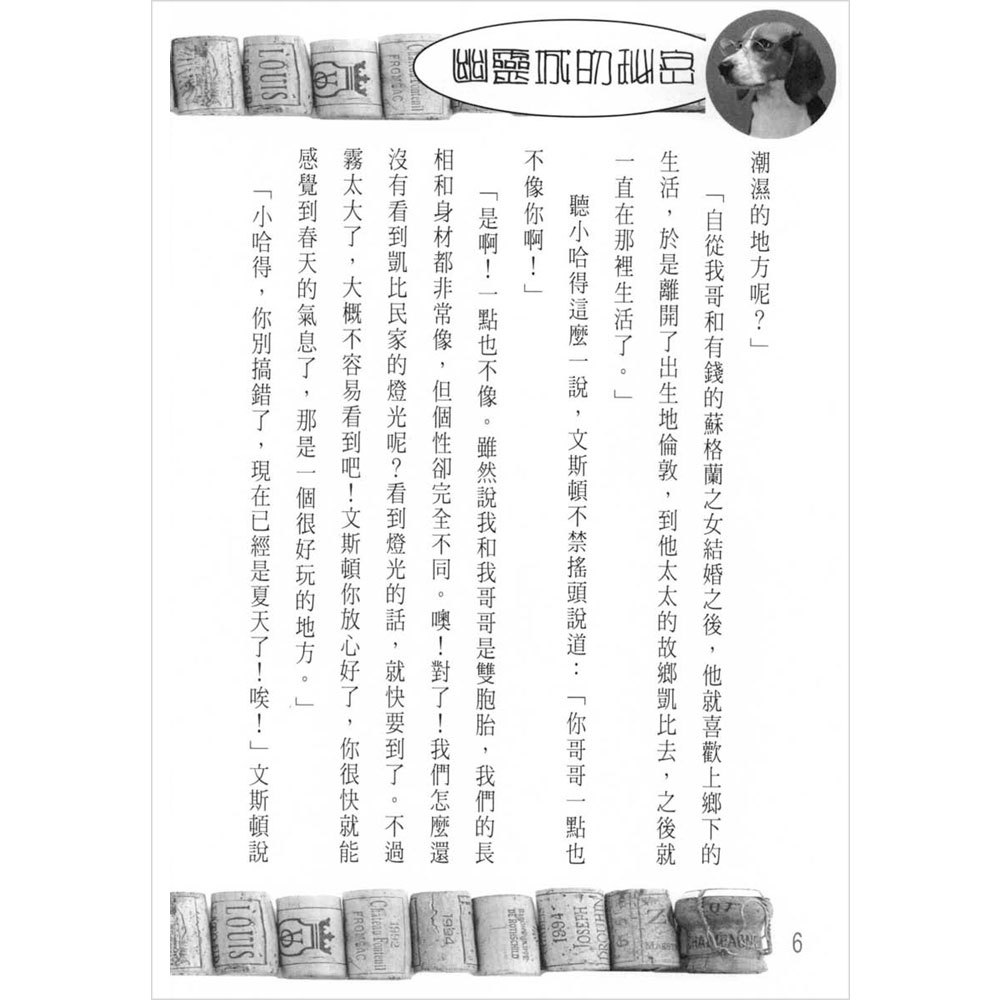 幽靈城的秘密
潮濕的地方呢？」
「自從我哥和有錢的蘇格蘭之女結婚之後，他就喜歡上鄉下的
生活，於是離開了出生地倫敦，到他太太的故鄉凱比去，之後就
一直在那裡生活了。」
聽小哈得這麼一說，文斯頓不禁搖頭說道：「你哥哥一點也
不像你啊！」
「是啊！一點也不像。雖然說我和我哥哥是雙胞胎，我們的長
相和身材都非常像，但個性卻完全不同。噢！對了！我們怎麼還
沒有看到凱比民家的燈光呢？看到燈光的話，就快要到了。不過
霧太大了，大概不容易看到吧！文斯頓你放心好了，你很快就能
感覺到春天的氣息了，那是一個很好玩的地方。」
「小哈得，你別搞錯了，現在已經是夏天了！唉！」文斯頓說
LOUIS
FRONSAC
LOUIS
Château Fonteuil
1992
FRONSAC
1994
DE ROTHSCHILD
1994
JOSEPH
CHAMPAGNE
6